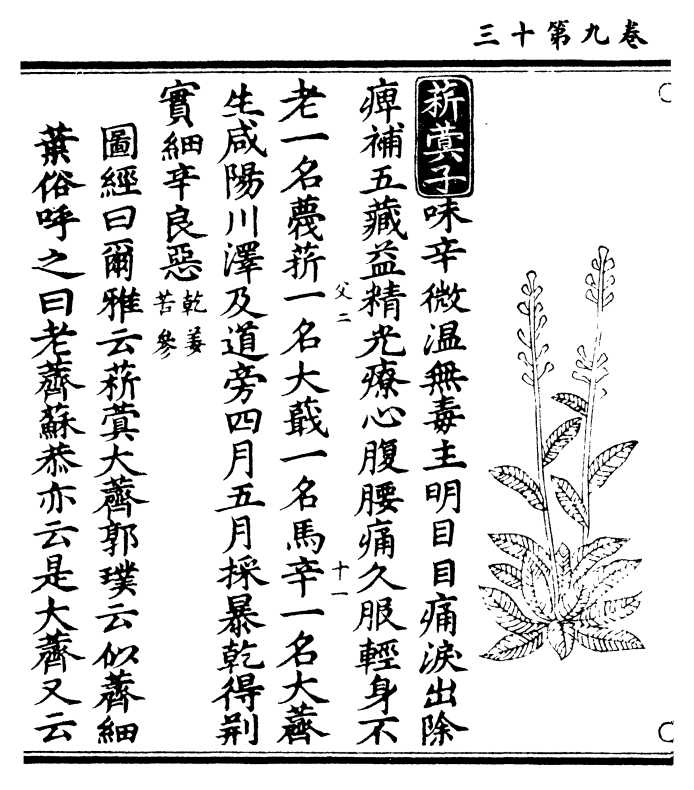 卷九第十三
菥蓂子味辛微温無毒主明目目痛淚出除
痺補五藏益精光療心腹腰痛久服輕身不
父二
十一
老一名蔑菥一名大蕺一名馬辛一名大薺
生咸陽川澤及道旁四月五月採暴乾得荆
實細辛良惡乾姜苦參
圖經曰爾雅云菥蓂大薺郭璞云似薺細
葉俗呼之曰老薺蘇恭亦云是大薺又云